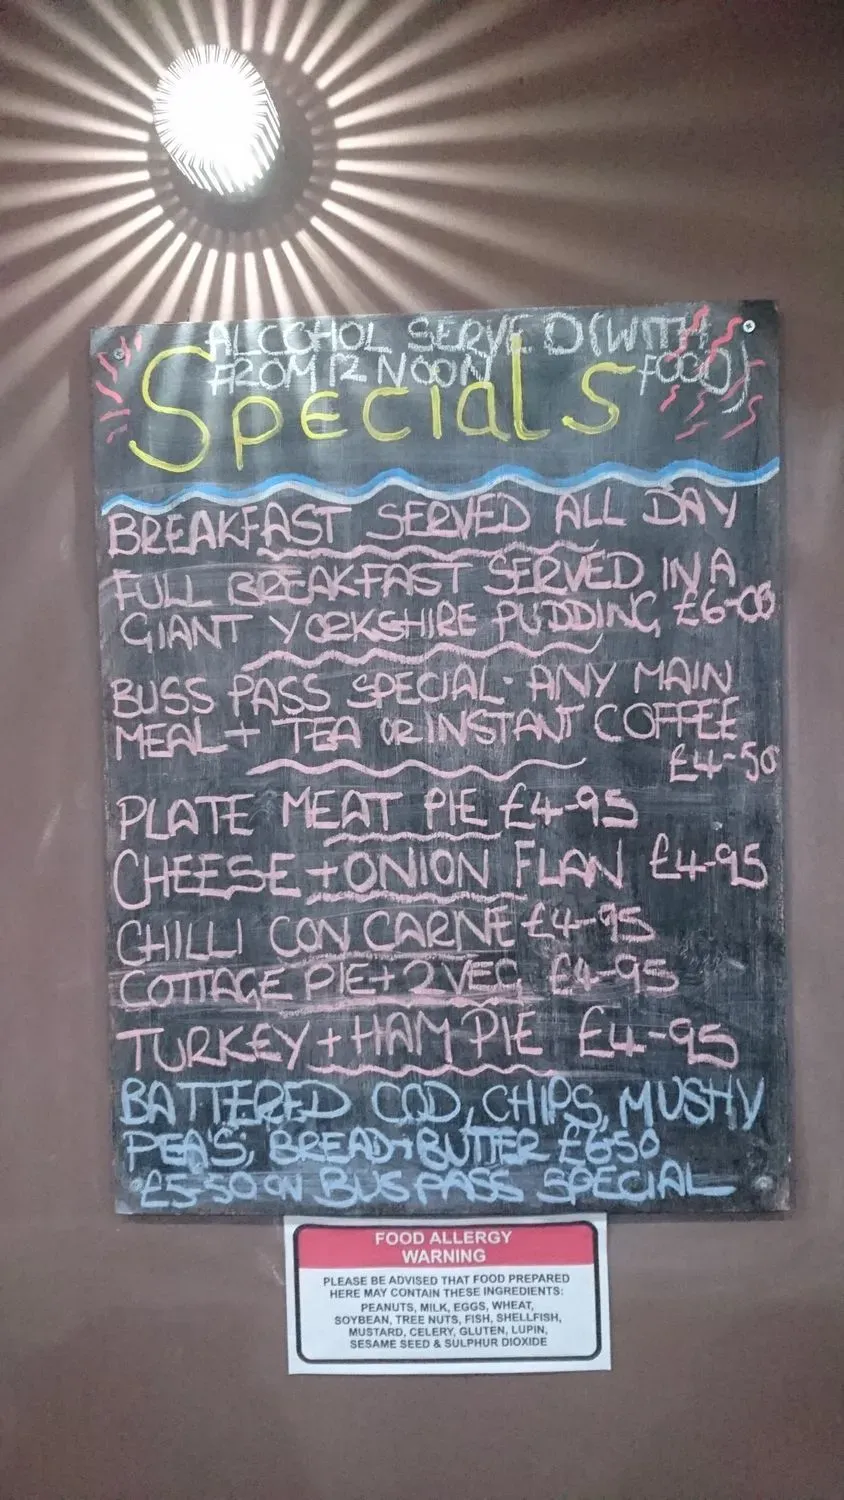 ALCOHOL SERVED (WITH
FROM 12 NOON FOOD)
Specials
BREAKFAST SERVED ALL DAY
FULL BREAKFAST SERVED IN A
GIANT YORKSHIRE PUDDING £6-00
BUSS PASS SPECIAL - ANY MAIN
MEAL + TEA OR INSTANT COFFEE
£4-50
PLATE MEAT PIE £4-95
CHEESE + ONION FLAN £4-95
CHILLI CON CARNE £4-95
COTTAGE PIE + 2 VEG £4-95
TURKEY + HAM PIE £4-95
BATTERED COD, CHIPS, MUSHY
PEAS, BREAD + BUTTER £650
£5-50 ON BUS PASS SPECIAL
FOOD ALLERGY
WARNING
PLEASE BE ADVISED THAT FOOD PREPARED
HERE MAY CONTAIN THESE INGREDIENTS:
PEANUTS, MILK, EGGS, WHEAT,
SOYBEAN, TREE NUTS, FISH, SHELLFISH,
MUSTARD, CELERY, GLUTEN, LUPIN,
SESAME SEED & SULPHUR DIOXIDE